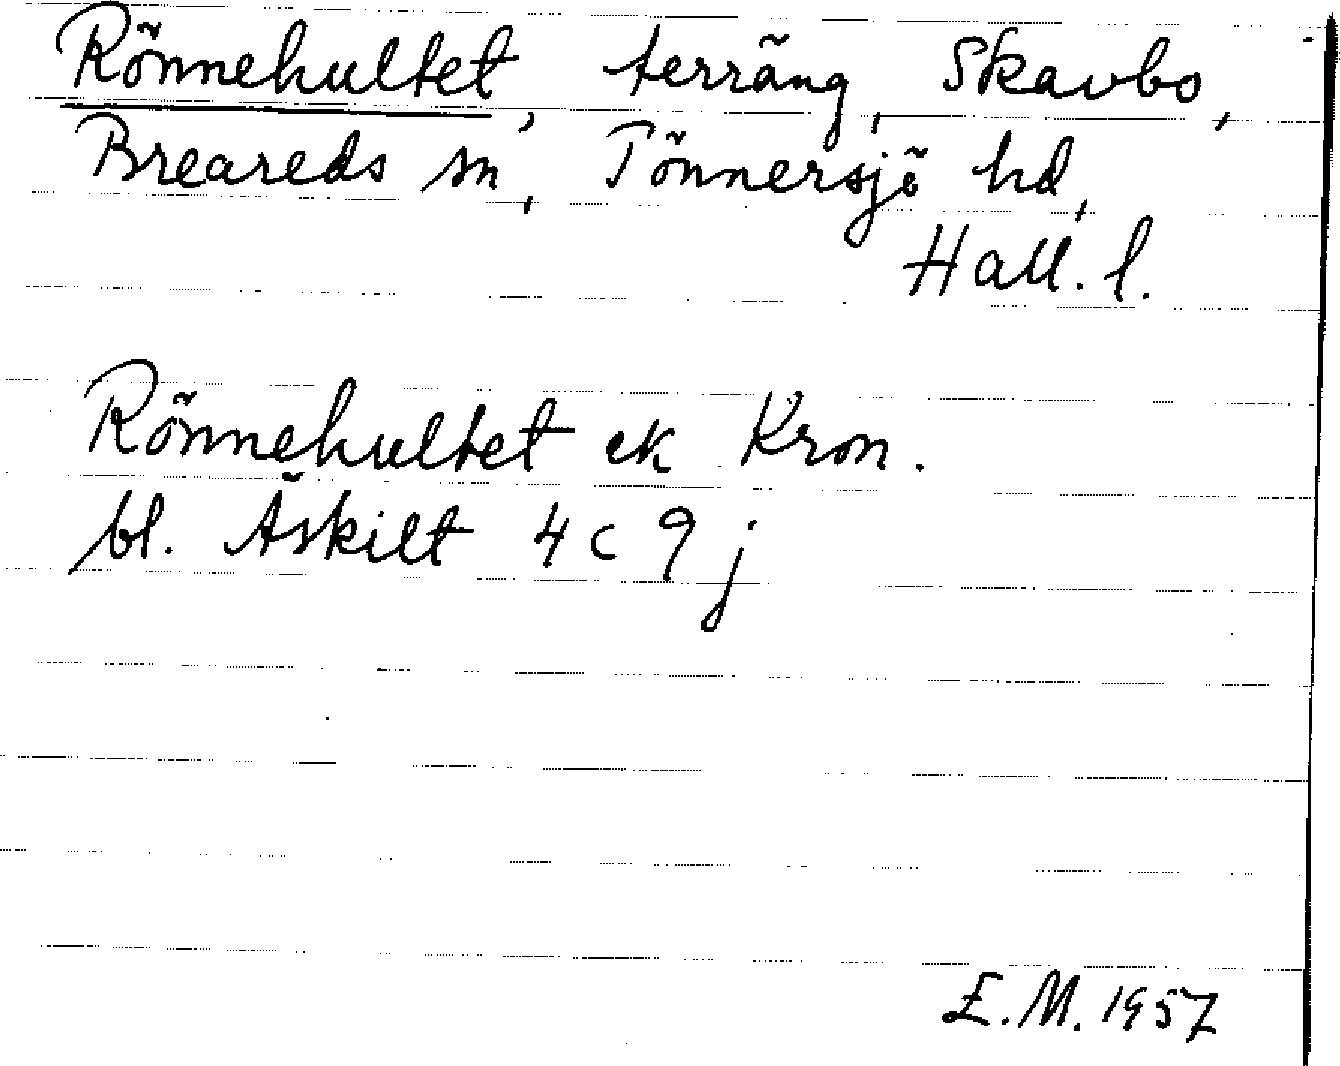 Rönnehultet, terräng, Skavbo,
Breareds sn, Tönnersjö hd,
Hall. l.
Rönnehultet ek Kron.
bl. Äskilt 4 c 9 j
E. M. 1957